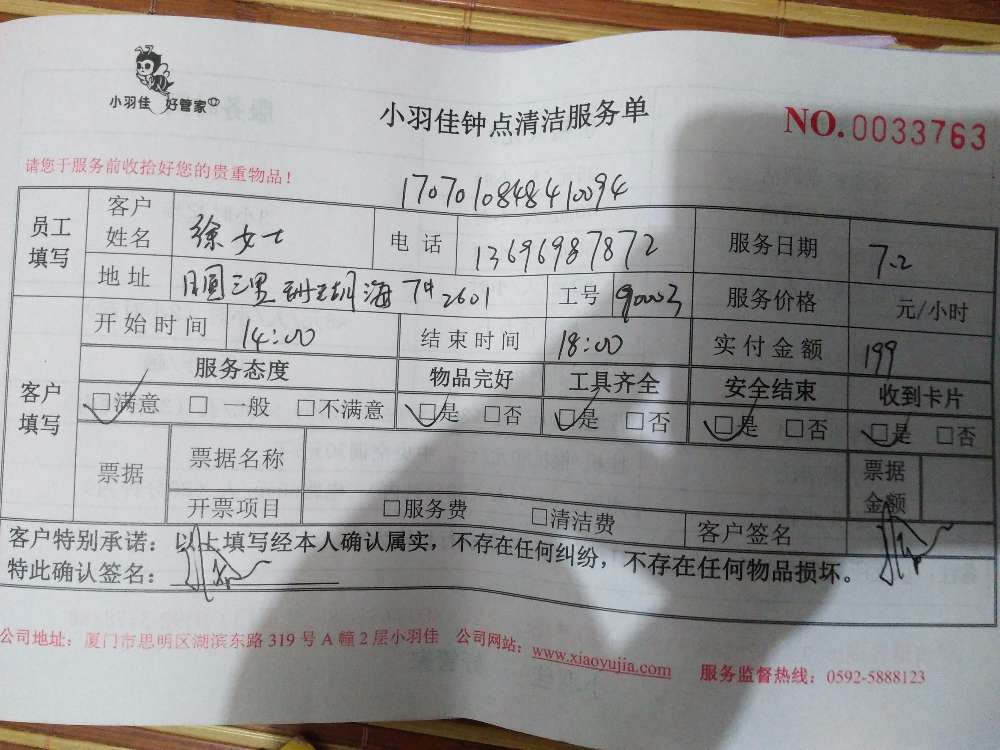 小羽佳 好管家
小羽佳钟点清洁服务单
NO.0033763
请您于服务前收拾好您的贵重物品！
1707010848410094
员工填写 客户姓名 徐女士 电话 13696987872 服务日期 7.2
地址 月圆三里 海 7# 2601 工号 90003 服务价格 元/小时
客户填写 开始时间 14:00 结束时间 18:00 实付金额 199
服务态度 物品完好 工具齐全 安全结束 收到卡片
☑满意 □一般 □不满意 ☑是 □否 ☑是 □否 ☑是 □否 ☑是 □否
票据 票据名称 票据金额
开票项目 □服务费 □清洁费 客户签名
客户特别承诺：以上填写经本人确认属实，不存在任何纠纷，不存在任何物品损坏。
特此确认签名：
公司地址：厦门市思明区湖滨东路 319 号 A 幢 2 层小羽佳 公司网站：www.xiaoyujia.com 服务监督热线：0592-5888123